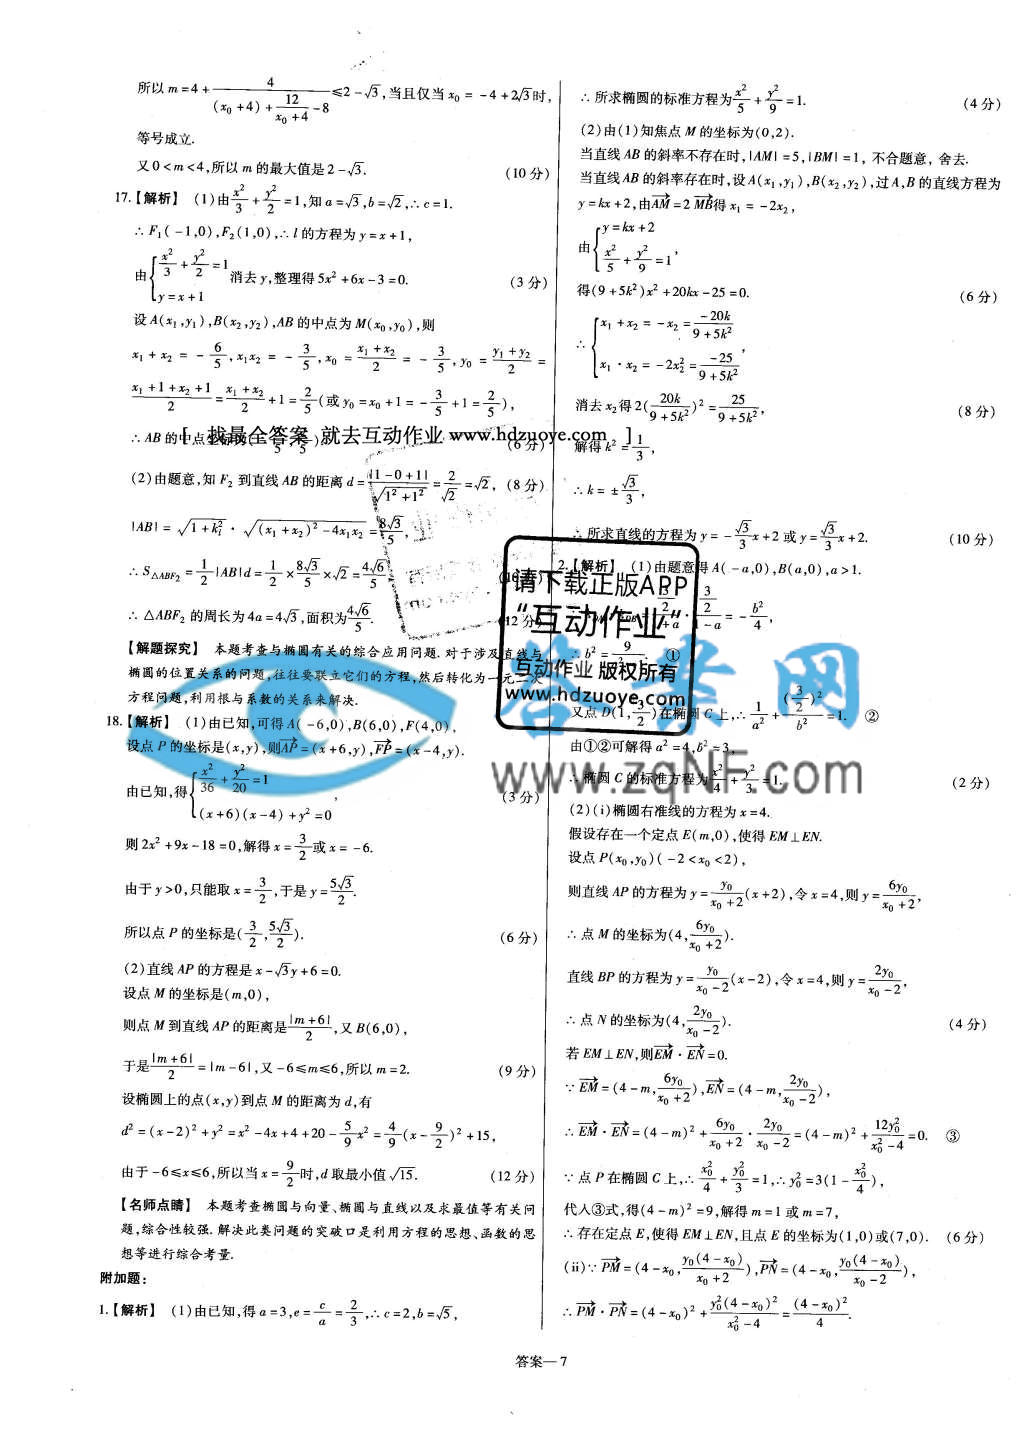 所以 m=4+4/((x₀+4)+12/(x₀+4)-8)≤2-√3,当且仅当 x₀=-4+2√3时,
等号成立.
又 0<m<4,所以 m 的最大值是 2-√3. (10 分)
17.【解析】 (1)由x²/3+y²/2=1,知 a=√3,b=√2,∴c=1.
∴F₁(-1,0),F₂(1,0),∴l 的方程为 y=x+1,
由{x²/3+y²/2=1 y=x+1 消去 y,整理得 5x²+6x-3=0. (3 分)
设 A(x₁,y₁),B(x₂,y₂),AB 的中点为 M(x₀,y₀),则
x₁+x₂=-6/5,x₁x₂=-3/5,x₀=(x₁+x₂)/2=-3/5,y₀=(y₁+y₂)/2=
(x₁+1+x₂+1)/2=(x₁+x₂)/2+1=2/5(或 y₀=x₀+1=-3/5+1=2/5),
∴AB 的中点 (6 分)
[ 找最全答案 就去互动作业 www.hdzuoye.com ]
(2)由题意,知 F₂ 到直线 AB 的距离 d=|1-0+1|/√(1²+1²)=2/√2=√2, (8 分)
|AB|=√(1+k²)·√((x₁+x₂)²-4x₁x₂)=8√3/5,
∴S△ABF₂=1/2|AB|d=1/2×8√3/5×√2=4√6/5.
∴△ABF₂ 的周长为 4a=4√3,面积为4√6/5. (12 分)
【解题探究】 本题考查与椭圆有关的综合应用问题.对于涉及直线与
椭圆的位置关系的问题,往往要联立它们的方程,然后转化为一元二次
方程问题,利用根与系数的关系来解决.
18.【解析】 (1)由已知,可得 A(-6,0),B(6,0),F(4,0).
设点 P 的坐标是(x,y),则AP=(x+6,y),FP=(x-4,y).
由已知,得{x²/36+y²/20=1 (x+6)(x-4)+y²=0 , (3 分)
则 2x²+9x-18=0,解得 x=3/2或 x=-6.
由于 y>0,只能取 x=3/2,于是 y=5√3/2.
所以点 P 的坐标是(3/2,5√3/2). (6 分)
(2)直线 AP 的方程是 x-√3y+6=0.
设点 M 的坐标是(m,0),
则点 M 到直线 AP 的距离是|m+6|/2,又 B(6,0),
于是|m+6|/2=|m-6|,又-6≤m≤6,所以 m=2. (9 分)
设椭圆上的点(x,y)到点 M 的距离为 d,有
d²=(x-2)²+y²=x²-4x+4+20-5/9x²=4/9(x-9/2)²+15,
由于-6≤x≤6,所以当 x=9/2时,d 取最小值√15. (12 分)
【名师点睛】 本题考查椭圆与向量、椭圆与直线以及求最值等有关问
题,综合性较强.解决此类问题的突破口是利用方程的思想、函数的思
想等进行综合考量.
附加题:
1.【解析】 (1)由已知,得 a=3,e=c/a=2/3,∴c=2,b=√5,
∴所求椭圆的标准方程为x²/5+y²/9=1. (4 分)
(2)由(1)知焦点 M 的坐标为(0,2).
当直线 AB 的斜率不存在时,|AM|=5,|BM|=1,不合题意,舍去.
当直线 AB 的斜率存在时,设 A(x₁,y₁),B(x₂,y₂),过 A,B 的直线方程为
y=kx+2,由AM=2MB得 x₁=-2x₂,
由{y=kx+2 x²/5+y²/9=1 ,
得(9+5k²)x²+20kx-25=0. (6 分)
∴{x₁+x₂=-x₂=-20k/(9+5k²) x₁·x₂=-2x₂²=-25/(9+5k²) ,
消去 x₂得 2(20k/(9+5k²))²=25/(9+5k²), (8 分)
解得 k²=1/3,
∴k=±√3/3,
∴所求直线的方程为 y=-√3/3x+2 或 y=√3/3x+2. (10 分)
2.【解析】 (1)由题意得 A(-a,0),B(a,0),a>1.
=-b²/4,
∴b²= ①
又点 D(1,3/2)在椭圆 C 上,∴1/a²+(3/2)²/b²=1. ②
由①②可解得 a²=4,b²=3,
∴椭圆 C 的标准方程为x²/4+y²/3=1. (2 分)
(2)(i)椭圆右准线的方程为 x=4.
假设存在一个定点 E(m,0),使得 EM⊥EN.
设点 P(x₀,y₀)(-2<x₀<2),
则直线 AP 的方程为 y=y₀/(x₀+2)(x+2),令 x=4,则 y=6y₀/(x₀+2),
∴点 M 的坐标为(4,6y₀/(x₀+2)).
直线 BP 的方程为 y=y₀/(x₀-2)(x-2),令 x=4,则 y=2y₀/(x₀-2),
∴点 N 的坐标为(4,2y₀/(x₀-2)). (4 分)
若 EM⊥EN,则EM·EN=0.
∵EM=(4-m,6y₀/(x₀+2)),EN=(4-m,2y₀/(x₀-2)),
∴EM·EN=(4-m)²+6y₀/(x₀+2)·2y₀/(x₀-2)=(4-m)²+12y₀²/(x₀²-4)=0. ③
∵点 P 在椭圆 C 上,∴x₀²/4+y₀²/3=1,∴y₀²=3(1-x₀²/4),
代入③式,得(4-m)²=9,解得 m=1 或 m=7,
∴存在定点 E,使得 EM⊥EN,且点 E 的坐标为(1,0)或(7,0). (6 分)
(ii)∵PM=(4-x₀,y₀(4-x₀)/(x₀+2)),PN=(4-x₀,y₀(4-x₀)/(x₀-2)),
∴PM·PN=(4-x₀)²+y₀²(4-x₀)²/(x₀²-4)=(4-x₀)²/4.
请下载正版APP
“互动作业”
互动作业 版权所有
www.hdzuoye.com
答案网
www.zqNF.com
答案—7